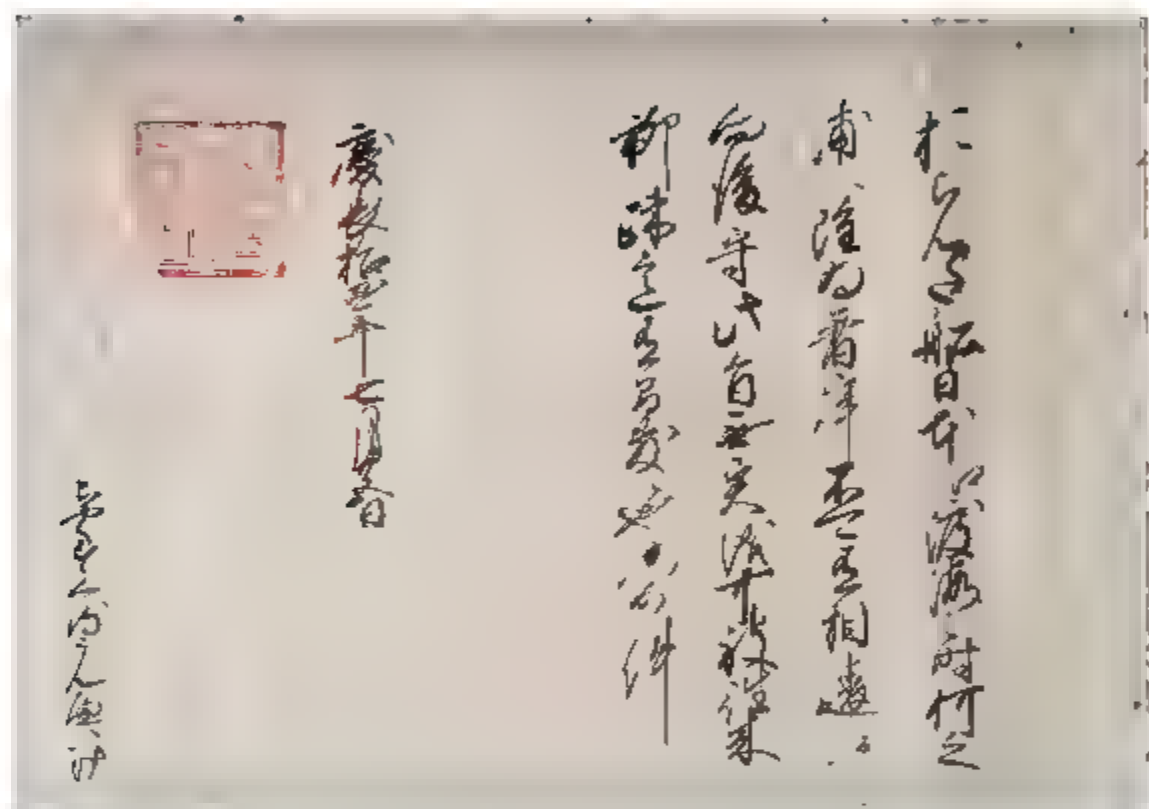 おらんだ船日本江渡海之時何之
浦ニ雖為着岸不可有相違候
向後守此旨無異儀可被致往来
聊疎意有間敷候也仍如件
慶長拾四年七月廿五日